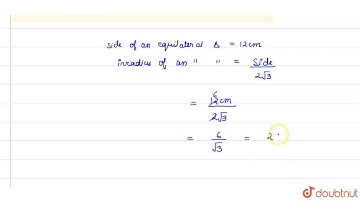 side of an equilateral Δ = 12cm
inradius of an " " = Side / 2√3
= 12cm / 2√3 6
= 6 / √3 = 2
doubtnut